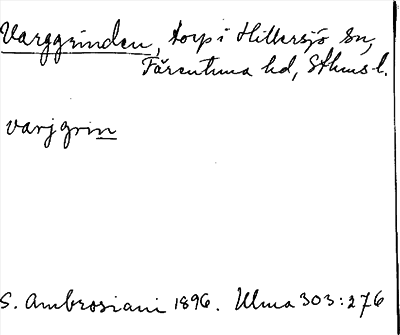 Varggrinden, torp i Hilleresjö sn,
Färentuna hd, Sthms l.
varjgrin
S. Ambrosiani 1896. Ulma 303:276